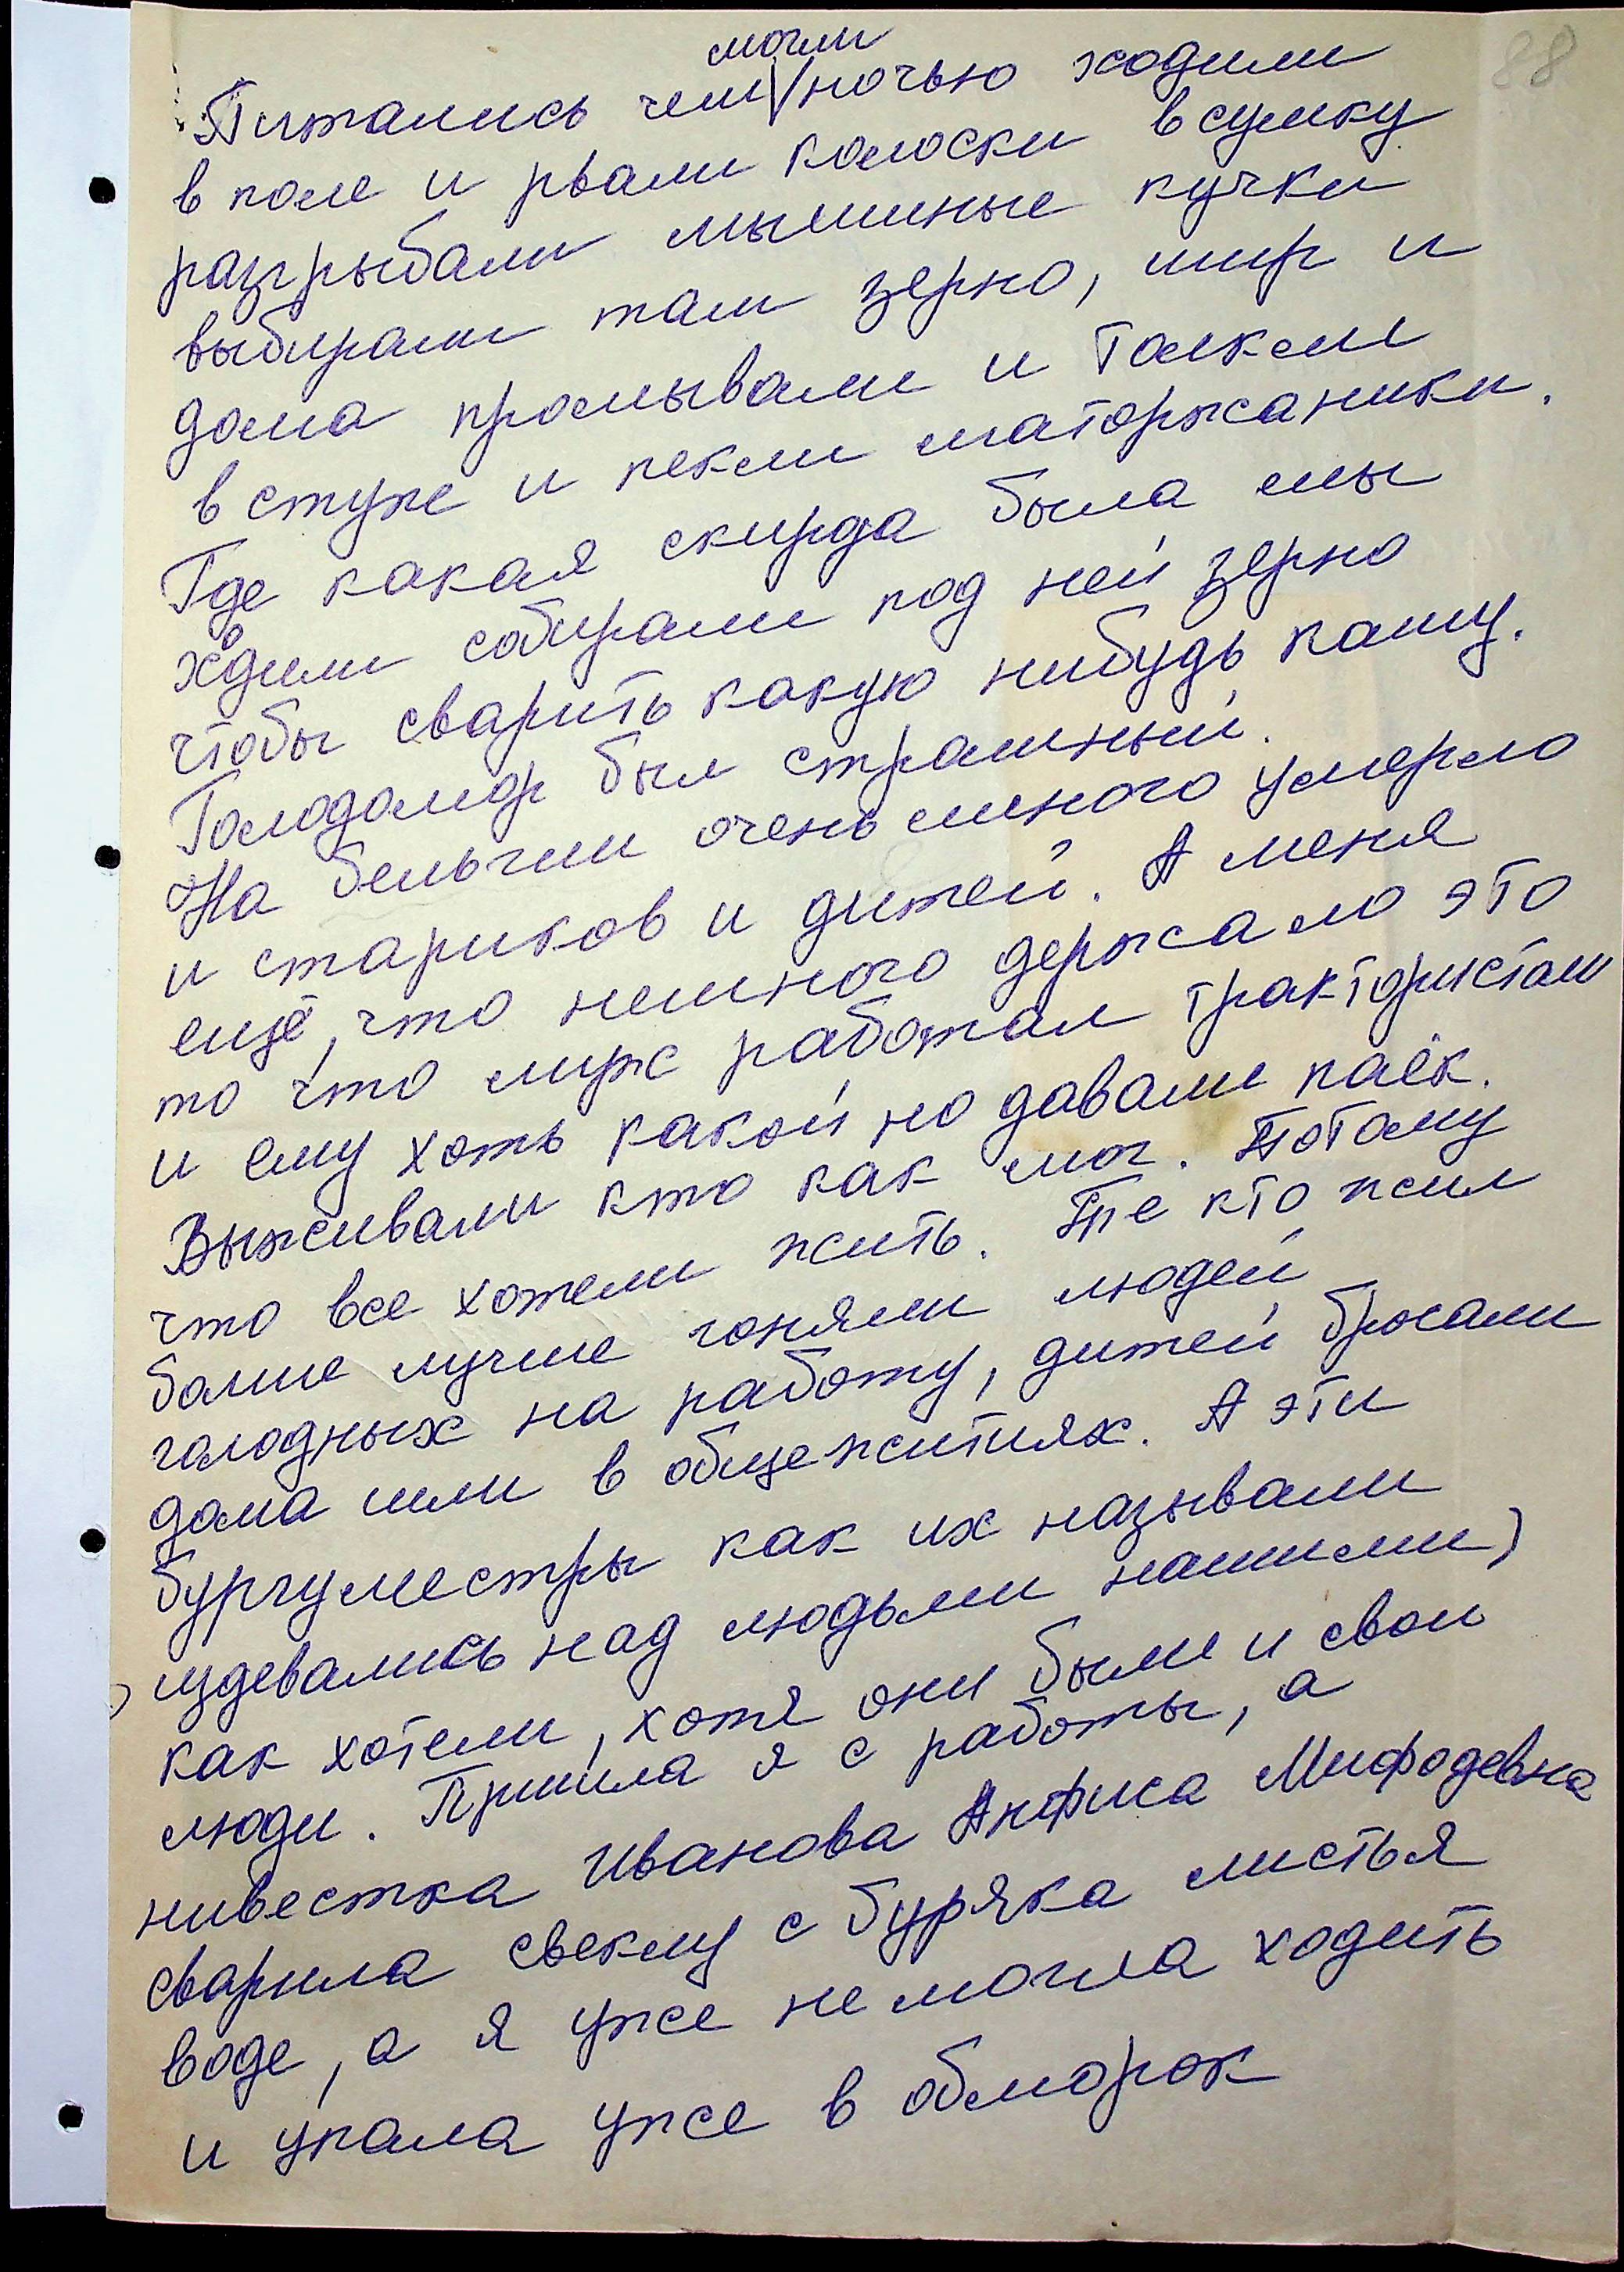 88
Питались чем могли ночью ходили
в поле и рвали колоски в сумку
разгрыбали мышиные кучки
выбирали там зерно, шир и
дома промывали и толкли
в ступе и пекли маторжаники.
Где какая скирда была мы
ходили собирали под ней зерно
чтобы сварить какую нибудь кашу.
Голодомор был страшный.
На бельгии очень много умерло
и стариков и дитей. А меня
ещё, что немного держало это
то что муж работал трактористом
и ему хоть какой но давали паёк.
Выживали кто как мог. Потому
что все хотели жить. Где кто жил
болше лучше гоняли людей
голодных на работу, дитей бросали
дома или в общежитиях. А эти
бургуместры как их называли
издевались над людьми нашими)
как хотели, хотя они были и свои
люди. Пришла я с работы, а
нивестка Иванова Анфиса Мифодевна
сварила свеклу с буряка листья
воде, а я уже не могла ходить
и упала уже в обморок